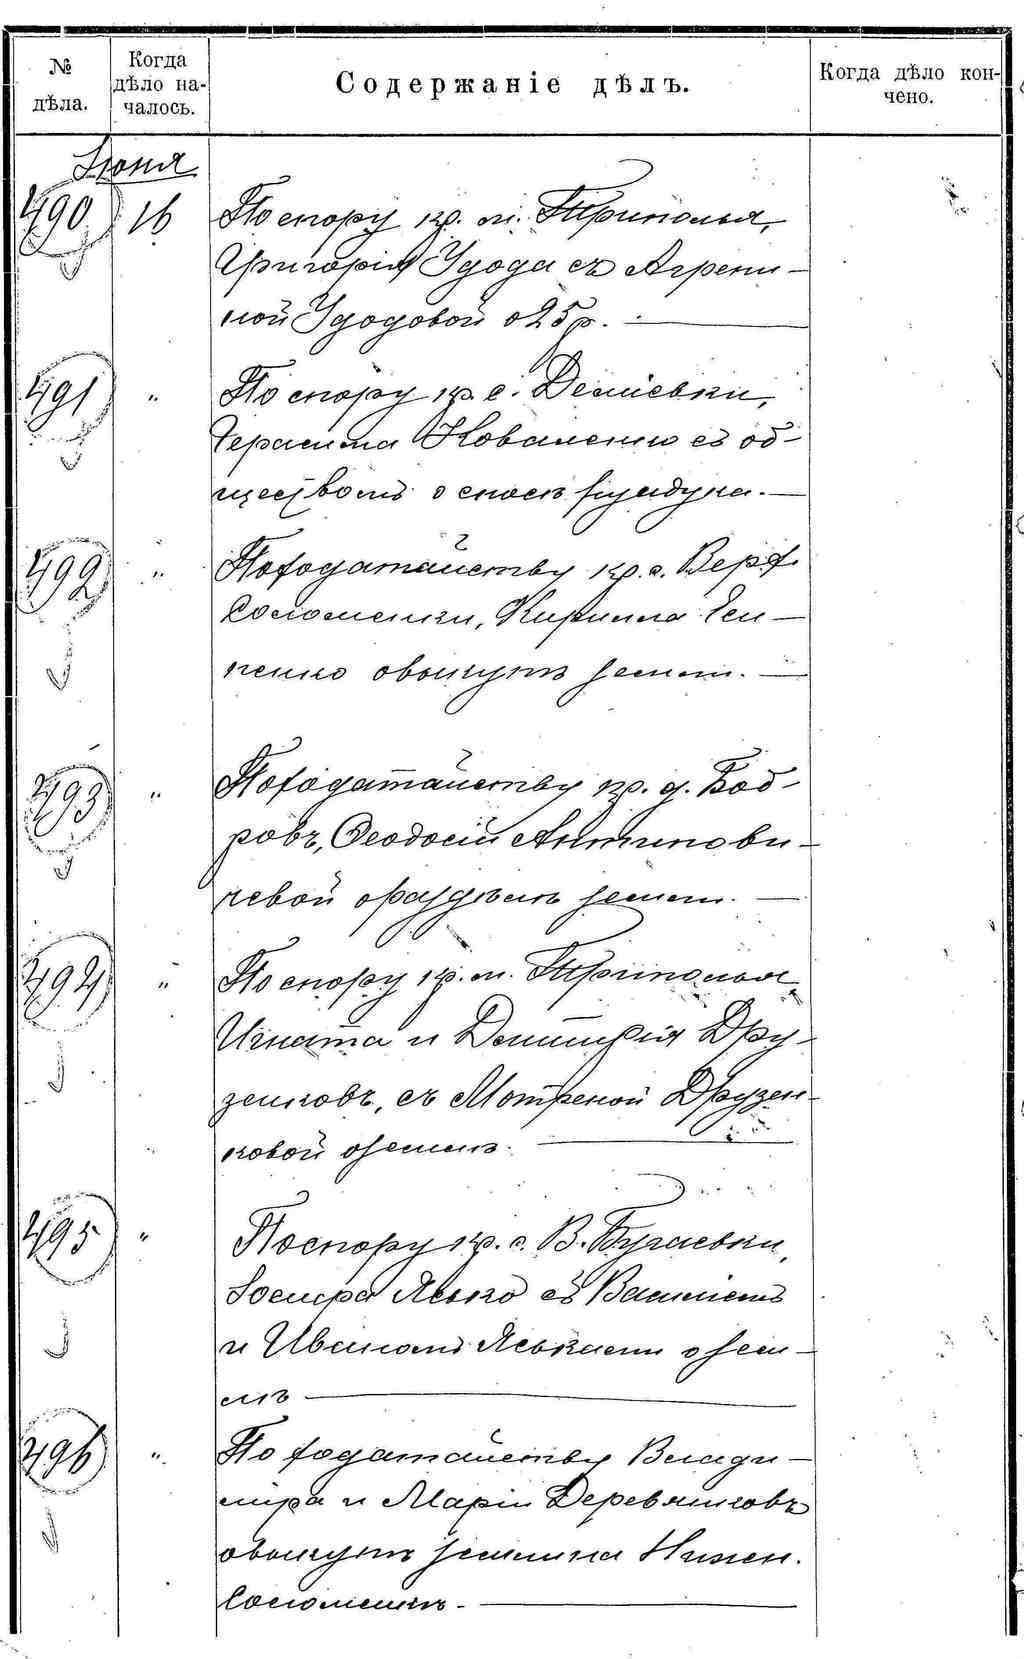 № дѣла.
Когда дѣло на-
чалось.
Содержаніе дѣлъ.
Когда дѣло кон-
чено.
Іюня
490 16 По спору кр. м. Триполья,
Григорія Удода съ Агрепи-
ной Удодовой о 25 р.
491 " По спору кр. с. Деміевки,
Герасима Коваленко съ об-
ществомъ о сносѣ
492 " По ходатайству кр. с. Верх.
Соломенки, Кирилла Ген-
ненко о выкупѣ земли.
493 " По ходатайству кр. д. Боб-
ровъ, Феодосіи Антипови-
чевой о раздѣлѣ земли.
494 " По спору кр. м. Триполья
Игната и Дмитрія Дру-
зенковъ, съ Мотреной Друзен-
ковой о землѣ.
495 " По спору кр. с. В. Бугаевки,
Іосифа Ясько съ Василіемъ
и Иваномъ Яськами о зем-
лѣ
496 " По ходатайству Влади-
міра и Маріи Деревянковъ
о выкупѣ земли на Нижн.
Соломенкѣ.